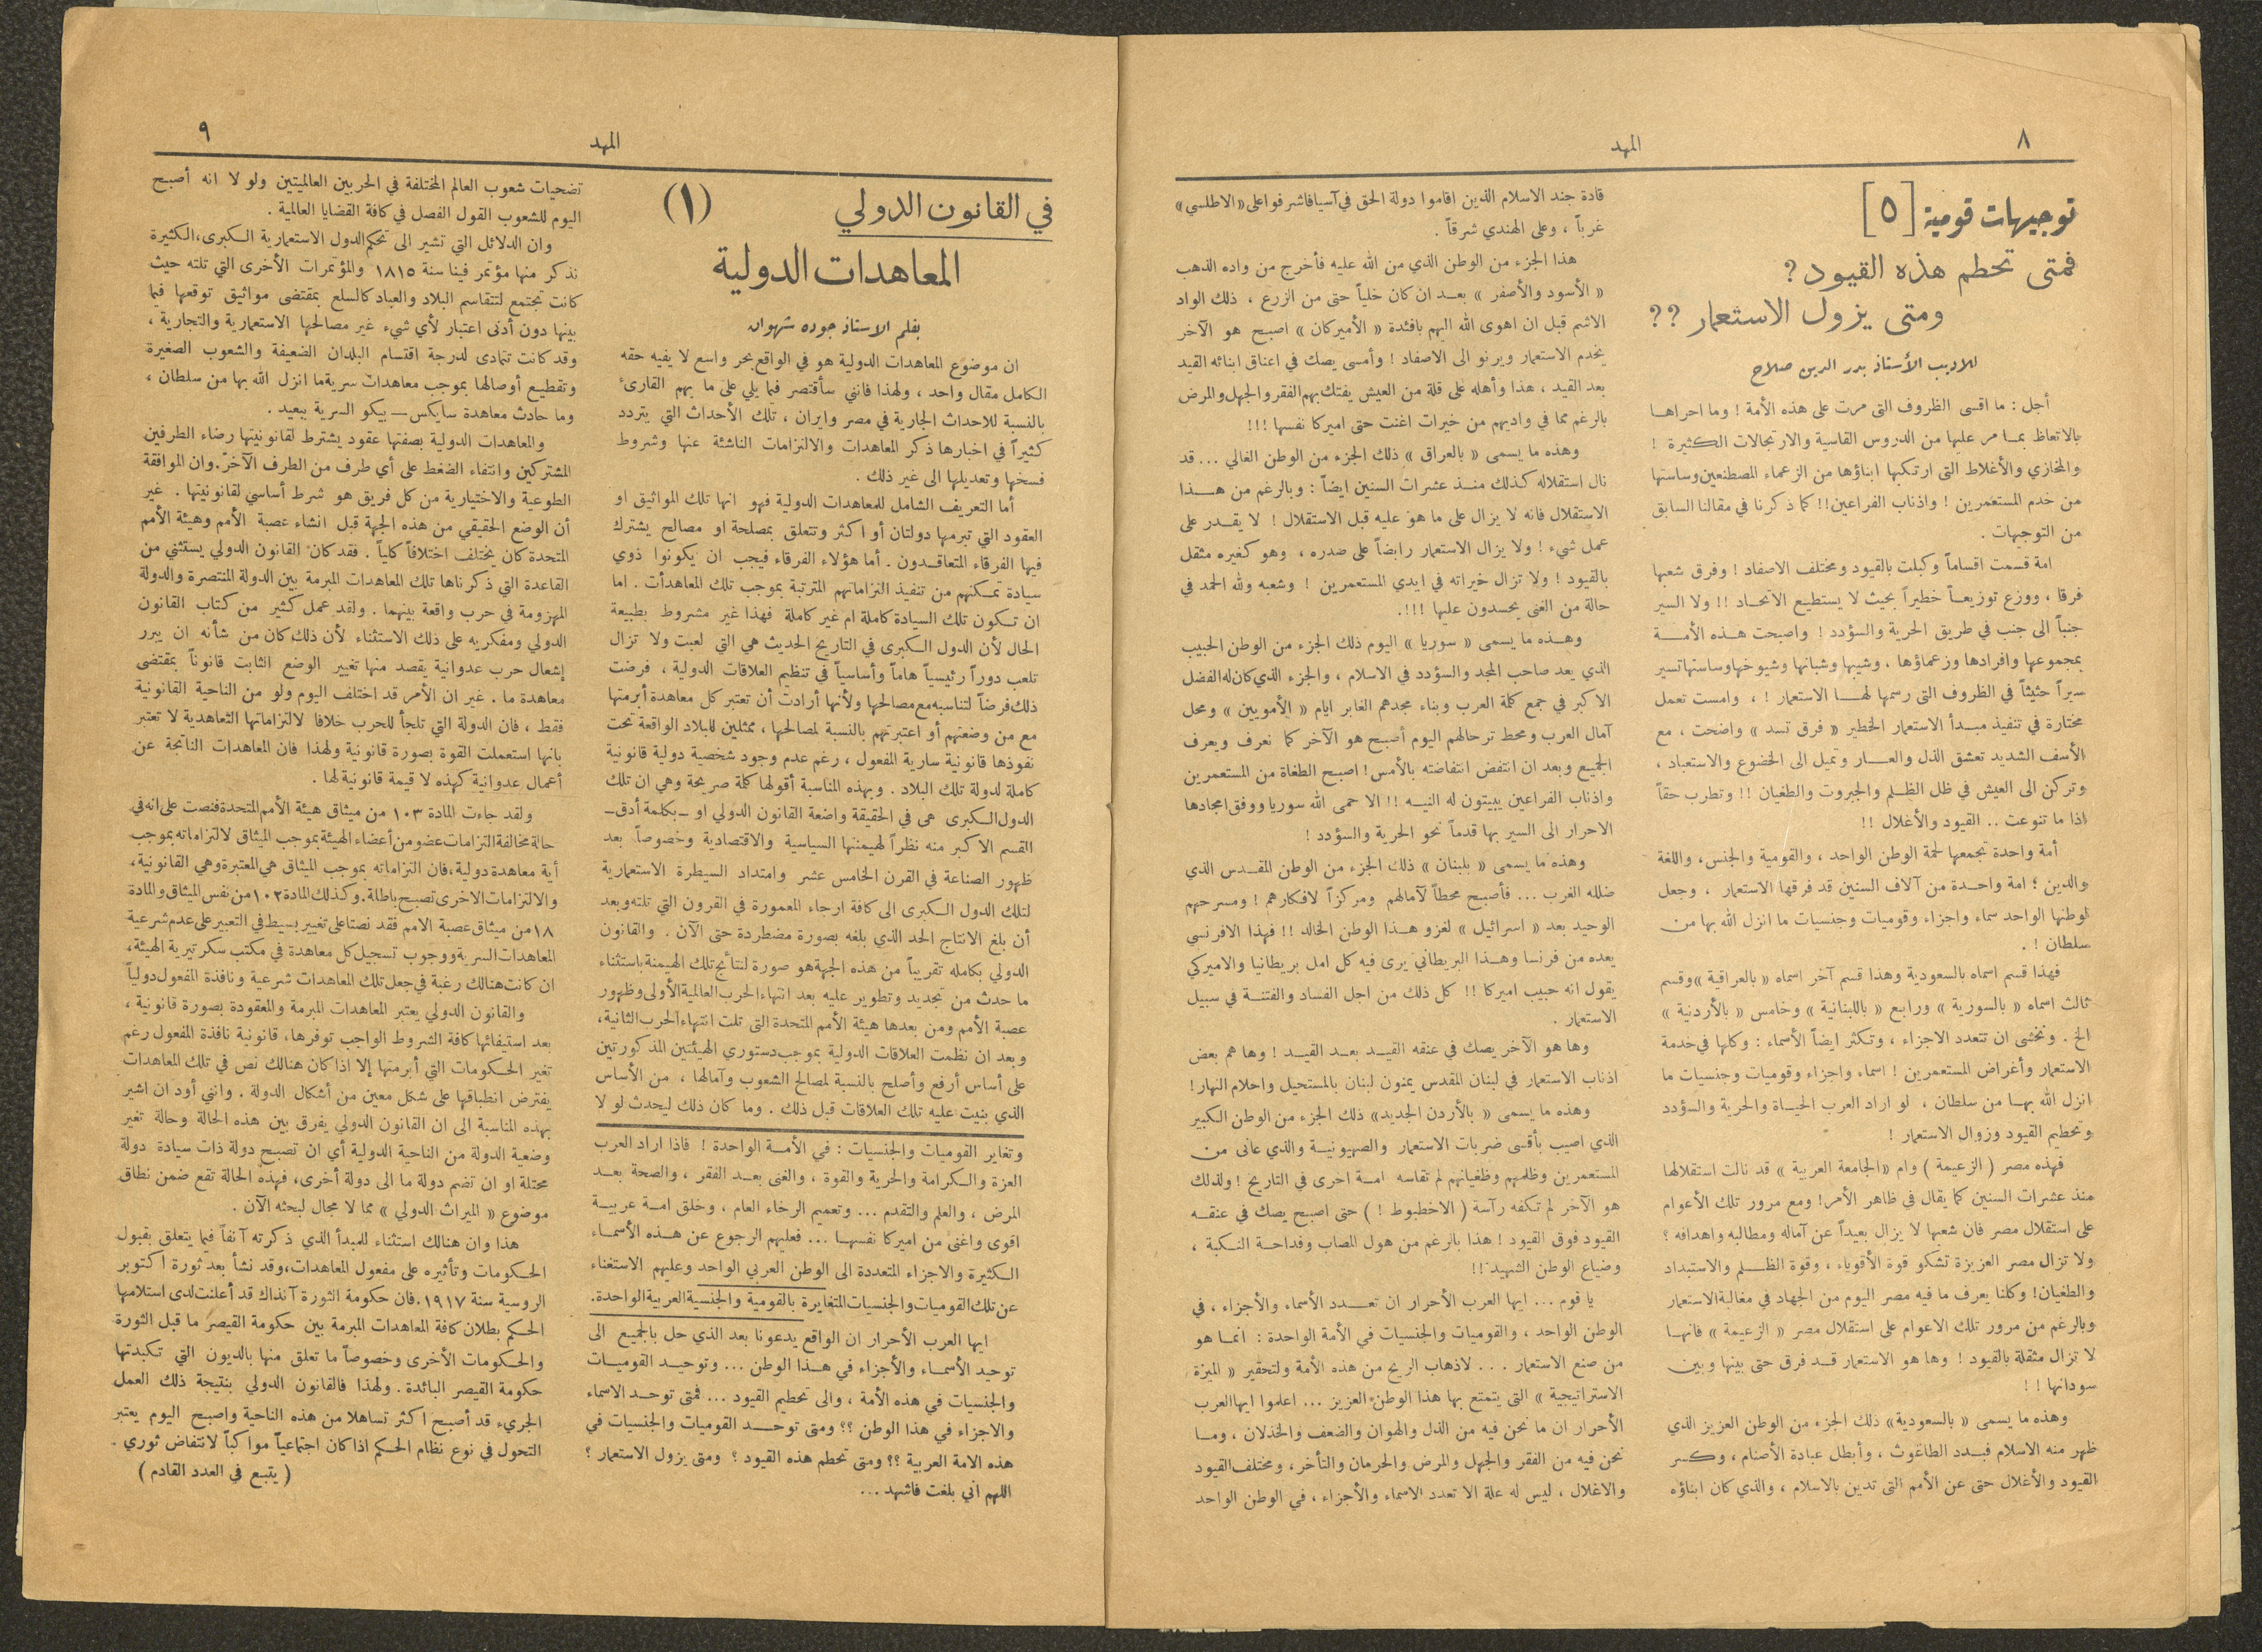 ٨
المهد
توجيهات قومية [٥]
فمتى تحطم هذه القيود ؟
ومتى يزول الاستعمار ؟؟
للاديب الأستاذ بدر الدين صلاح
أجل : ما اقسى الظروف التى مرت على هذه الأمة ! وما احراها
بالاتعاظ بما مر عليها من الدروس القاسية والارتجالات الكثيرة !
والمخازي والأغلاط التى ارتكبها ابناؤها من الزعماء المصطنعين وساستها
من خدم المستعمرين ! واذناب الفراعين !! كما ذكرنا في مقالنا السابق
من التوجيهات .
امة قسمت اقساماً وكبلت بالقيود ومختلف الاصفاد ! وفرق شعبها
فرقا ، ووزع توزيعاً خطيراً بحيث لا يستطيع الاتحاد !! ولا السير
جنباً الى جنب في طريق الحرية والسؤدد ! واصبحت هذه الأمة
بمجموعها وافرادها وزعماؤها ، وشيبها وشبانها وشيوخها وساستها تسير
سيراً حثيثاً في الظروف التى رسمها لها الاستعمار ! ، وامست تعمل
مختارة في تنفيذ مبدأ الاستعمار الخطير « فرق تسد » واضحت ، مع
الأسف الشديد تعشق الذل والعار وتميل الى الخضوع والاستعباد ،
وتركن الى العيش في ظل الظلم والجبروت والطغيان !! وتطرب حقاً
اذا ما تنوعت .. القيود والأغلال !!
أمة واحدة تجمعها لحمة الوطن الواحد ، والقومية والجنس، واللغة
والدين ؛ امة واحدة من آلاف السنين قد فرقها الاستعمار ، وجعل
لوطنها الواحد سماء واجزاء وقوميات وجنسيات ما انزل الله بها من
سلطان ! .
فهذا قسم اسماه بالسعودية وهذا قسم آخر اسماه « بالعراقية » وقسم
ثالث اسماه « بالسورية » ورابع « باللبنانية » وخامس « بالأردنية »
الخ . ونخشى ان تتعدد الاجزاء ، وتكثر ايضاً الأسماء : وكلها في خدمة
الاستعمار وأغراض المستعمرين ! اسماء واجزاء وقوميات وجنسيات ما
انزل الله بها من سلطان ، لو اراد العرب الحياة والحرية والسؤدد
وتحطيم القيود وزوال الاستعمار !
فهذه مصر ( الزعيمة ) وام « الجامعة العربية » قد نالت استقلالها
منذ عشرات السنين كما يقال في ظاهر الأمر! ومع مرور تلك الأعوام
على استقلال مصر فان شعبها لا يزال بعيداً عن آماله ومطالبه واهدافه ؟
ولا تزال مصر العزيزة تشكو قوة الأقوياء ، وقوة الظلم والاستبداد
والطغيان! وكلنا يعرف ما فيه مصر اليوم من الجهاد في مغالبة الاستعمار
وبالرغم من مرور تلك الاعوام على استقلال مصر « الزعيمة » فانها
لا تزال مثقلة بالقيود ! وها هو الاستعمار قد فرق حتى بينها وبين
سودانها ! !
وهذه ما يسمى « بالسعودية » ذلك الجزء من الوطن العزيز الذي
ظهر منه الاسلام فبدد الطاغوث ، وأبطل عبادة الأصنام ، وكسر
القيود والأغلال حتى عن الأمم التى تدين بالاسلام ، والذي كان ابناؤه
قادة جند الاسلام الذين اقاموا دولة الحق في آسيا فاشرفوا على « الاطلسي »
غرباً ، وعلى الهندي شرقاً .
هذا الجزء من الوطن الذي من الله عليه فأخرج من واده الذهب
« الأسود والأصفر » بعد ان كان خلياً حتى من الزرع ، ذلك الواد
الاشم قبل ان اهوى الله اليهم بافئدة « الأميركان » اصبح هو الآخر
يخدم الاستعمار ويرنو الى الاصفاد ! وأمسى يصك في اعناق ابنائه القيد
بعد القيد ، هذا وأهله على قلة من العيش يفتك بهم الفقر والجهل والمرض
بالرغم مما في واديهم من خيرات اغنت حتى اميركا نفسها !!!
وهذه ما يسمى « بالعراق » ذلك الجزء من الوطن الغالي ... قد
نال استقلاله كذلك منذ عشرات السنين ايضاً : وبالرغم من هذا
الاستقلال فانه لا يزال على ما هو عليه قبل الاستقلال ! لا يقدر على
عمل شيء ! ولا يزال الاستعمار رابضاً على صدره ، وهو كغيره مثقل
بالقيود ! ولا تزال خيراته في ايدي المستعمرين ! وشعبه ولله الحمد في
حالة من الغنى يحسدون عليها !!!.
وهذه ما يسمى « سوريا » اليوم ذلك الجزء من الوطن الحبيب
الذي يعد صاحب المجد والسؤدد في الاسلام ، والجزء الذي كان له الفضل
الاكبر في جمع كلمة العرب وبناء مجدهم الغابر ايام « الأمويين » ومحل
آمال العرب ومحط ترحالهم اليوم أصبح هو الآخر كما نعرف ويعرف
الجميع وبعد ان انتفض انتفاضته بالأمس! اصبح الطغاة من المستعمرين
واذناب الفراعين يبيتون له النيه !! الا حمى الله سوريا ووفق امجادها
الاحرار الى السير بها قدماً نحو الحرية والسؤدد !
وهذه ما يسمى « بلبنان » ذلك الجزء من الوطن المقدس الذي
ضلله الغرب ... فأصبح محطاً لآمالهم ومركزاً لافكارهم ! ومسرحهم
الوحيد بعد « اسرائيل » لغزو هذا الوطن الخالد !! فهذا الافرنسي
يعده من فرنسا وهذا البريطاني يرى فيه كل امل بريطانيا والاميركي
يقول انه حبيب اميركا !! كل ذلك من اجل الفساد والفتنة في سبيل
الاستعمار .
وها هو الآخر يصك في عنقه القيد بعد القيد ! وها هم بعض
اذناب الاستعمار في لبنان المقدس يمنون لبنان بالمستحيل واحلام النهار!
وهذه ما يسمى « بالأردن الجديد » ذلك الجزء من الوطن الكبير
الذي اصيب بأقسى ضربات الاستعمار والصهيونية والذي عانى من
المستعمرين وظلمهم وطغيانهم لم تقاسه امة اخرى في التاريخ ! ولذلك
هو الآخر لم تكفه رآسة ( الاخطبوط ! ) حتى اصبح يصك في عنقه
القيود فوق القيود ! هذا بالرغم من هول المصاب وفداحة النكبة ،
وضياع الوطن الشهيد !!
يا قوم ... ايها العرب الأحرار ان تعدد الأسماء والأجزاء ، في
الوطن الواحد ، والقوميات والجنسيات في الأمة الواحدة : انما هو
من صنع الاستعمار ... لاذهاب الريح من هذه الأمة ولتحقير « الميزة
الاستراتيجية » التى يتمتع بها هذا الوطن العزيز ... اعلموا ايها العرب
الأحرار ان ما نحن فيه من الذل والهوان والضعف والخذلان ، وما
نحن فيه من الفقر والجهل والمرض والحرمان والتأخر ، ومختلف القيود
والاغلال ، ليس له علة الا تعدد الاسماء والأجزاء ، في الوطن الواحد
المهد
٩
في القانون الدولي (١)
المعاهدات الدولية
بقلم الاستاذ جوده شهوان
ان موضوع المعاهدات الدولية هو في الواقع بحر واسع لا يفيه حقه
الكامل مقال واحد ، ولهذا فانني سأقتصر فيما يلي على ما يهم القارىء
بالنسبة للاحداث الجارية في مصر وايران ، تلك الأحداث التي يتردد
كثيراً في اخبارها ذكر المعاهدات والالتزامات الناشئة عنها وشروط
فسخها وتعديلها الى غير ذلك .
أما التعريف الشامل للمعاهدات الدولية فهو انها تلك المواثيق او
العقود التي تبرمها دولتان أو اكثر وتتعلق بمصلحة او مصالح يشترك
فيها الفرقاء المتعاقدون . أما هؤلاء الفرقاء فيجب ان يكونوا ذوي
سيادة تمكنهم من تنفيذ التزاماتهم المترتبة بموجب تلك المعاهدات . اما
ان تكون تلك السيادة كاملة ام غير كاملة فهذا غير مشروط بطبيعة
الحال لأن الدول الكبرى في التاريخ الحديث هي التي لعبت ولا تزال
تلعب دوراً رئيسياً هاماً وأساسياً في تنظيم العلاقات الدولية ، فرضت
ذلك فرضاً لتناسبه مع مصالحها ولأنها أرادت أن تعتبر كل معاهدة أبرمتها
مع من وضعتهم أو اعتبرتهم بالنسبة لمصالحها ، ممثلين للبلاد الواقعة تحت
نفوذها قانونية سارية المفعول ، رغم عدم وجود شخصية دولية قانونية
كاملة لدولة تلك البلاد . وبهذه المناسبة أقولها كلمة صريحة وهي ان تلك
الدول الكبرى هى في الحقيقة واضعة القانون الدولي او ـ بكلمة أدق ـ
القسم الاكبر منه نظراً لهيمنتها السياسية والاقتصادية وخصوصاً بعد
ظهور الصناعة في القرن الخامس عشر وامتداد السيطرة الاستعمارية
لتلك الدول الكبرى الى كافة ارجاء المعمورة في القرون التي تلته وبعد
أن بلغ الانتاج الحد الذي بلغه بصورة مضطردة حتى الآن . والقانون
الدولي بكامله تقريباً من هذه الجهة هو صورة لنتائج تلك الهيمنة باستثناء
ما حدث من تجديد وتطوير عليه بعد انتهاء الحرب العالمية الأولى وظهور
عصبة الأمم ومن بعدها هيئة الأمم المتحدة التى تلت انتهاء الحرب الثانية،
وبعد ان نظمت العلاقات الدولية بموجب دستوري الهيئتين المذكورتين
على أساس أرفع وأصلح بالنسبة لمصالح الشعوب وآمالها ، من الأساس
الذي بنيت عليه تلك العلاقات قبل ذلك . وما كان ذلك ليحدث لو لا
وتغاير القوميات والجنسيات : في الأمة الواحدة ! فاذا اراد العرب
العزة والكرامة والحرية والقوة ، والغنى بعد الفقر ، والصحة بعد
المرض ، والعلم والتقدم ... وتعميم الرخاء العام ، وخلق امة عربية
اقوى واغنى من اميركا نفسها ... فعليهم الرجوع عن هذه الأسماء
الكثيرة والاجزاء المتعددة الى الوطن العربي الواحد وعليهم الاستغناء
عن تلك القوميات والجنسيات المتغايرة بالقومية والجنسية العربية الواحدة.
ايها العرب الأحرار ان الواقع يدعونا بعد الذي حل بالجميع الى
توحيد الأسماء والأجزاء في هذا الوطن ... وتوحيد القوميات
والجنسيات في هذه الأمة ، والى تحطيم القيود ... فمتى توحد الاسماء
والاجزاء في هذا الوطن ؟؟ ومتى توحد القوميات والجنسيات في
هذه الامة العربية ؟؟ ومتى تحطم هذه القيود ؟ ومتى يزول الاستعمار ؟
اللهم اني بلغت فاشهد ...
تضحيات شعوب العالم المختلفة في الحربين العالميتين ولو لا انه أصبح
اليوم للشعوب القول الفصل في كافة القضايا العالمية .
وان الدلائل التي تشير الى تحكم الدول الاستعمارية الكبرى، الكثيرة
نذكر منها مؤتمر فينا سنة ١٨١٥ والمؤتمرات الأخرى التي تلته حيث
كانت تجتمع لتتقاسم البلاد والعباد كالسلع بمقتضى مواثيق توقعها فيما
بينها دون أدنى اعتبار لأي شيء غير مصالحها الاستعمارية والتجارية ،
وقد كانت تتمادى لدرجة اقتسام البلدان الضعيفة والشعوب الصغيرة
وتقطيع أوصالها بموجب معاهدات سرية ما انزل الله بها من سلطان ،
وما حادث معاهدة سايكس — بيكو السرية ببعيد .
والمعاهدات الدولية بصفتها عقود يشترط لقانونيتها رضاء الطرفين
المشتركين وانتفاء الضغط على أي طرف من الطرف الآخر. وان الموافقة
الطوعية والاختيارية من كل فريق هو شرط أساسي لقانونيتها . غير
أن الوضع الحقيقي من هذه الجهة قبل انشاء عصبة الأمم وهيئة الأمم
المتحدة كان يختلف اختلافاً كلياً . فقد كان القانون الدولي يستثني من
القاعدة التي ذكرناها تلك المعاهدات المبرمة بين الدولة المنتصرة والدولة
المهزومة في حرب واقعة بينهما . ولقد عمل كثير من كتاب القانون
الدولي ومفكريه على ذلك الاستثناء لأن ذلك كان من شأنه ان يبرر
إشعال حرب عدوانية يقصد منها تغيير الوضع الثابت قانوناً بمقتضى
معاهدة ما . غير ان الأمر قد اختلف اليوم ولو من الناحية القانونية
فقط ، فان الدولة التي تلجأ للحرب خلافا لالتزاماتها التعاهدية لا تعتبر
بانها استعملت القوة بصورة قانونية ولهذا فان المعاهدات الناتجة عن
أعمال عدوانية كهذه لا قيمة قانونية لها .
ولقد جاءت المادة ١٠٣ من ميثاق هيئة الأمم المتحدة فنصت على انه في
حالة مخالفة التزامات عضو من أعضاء الهيئة بموجب الميثاق لالتزاماته بموجب
أية معاهدة دولية، فان التزاماته بموجب الميثاق هي المعتبرة وهي القانونية،
والالتزامات الاخرى تصبح باطلة. وكذلك المادة ١٠٢ من نفس الميثاق والمادة
١٨ من ميثاق عصبة الامم فقد نصتا على تغيير بسيط في التعبير على عدم شرعية
المعاهدات السرية ووجوب تسجيل كل معاهدة في مكتب سكرتيرية الهيئة،
ان كانت هنالك رغبة في جعل تلك المعاهدات شرعية ونافذة المفعول دولياً
والقانون الدولي يعتبر المعاهدات المبرمة والمعقودة بصورة قانونية ،
بعد استيفائها كافة الشروط الواجب توفرها، قانونية نافذة المفعول رغم
تغير الحكومات التي أبرمتها إلا اذا كان هنالك نص في تلك المعاهدات
يفترض انطباقها على شكل معين من أشكال الدولة . وانني أود ان اشير
بهذه المناسبة الى ان القانون الدولي يفرق بين هذه الحالة وحالة تغير
وضعية الدولة من الناحية الدولية أي ان تصبح دولة ذات سيادة دولة
محتلة او ان تضم دولة ما الى دولة أخرى، فهذه الحالة تقع ضمن نطاق
موضوع « الميراث الدولي » مما لا مجال لبحثه الآن .
هذا وان هنالك استثناء للمبدأ الذي ذكرته آنفاً فيما يتعلق بقبول
الحكومات وتأثيره على مفعول المعاهدات، وقد نشأ بعد ثورة اكتوبر
الروسية سنة ١٩١٧. فان حكومة الثورة آنذاك قد أعلنت لدى استلامها
الحكم بطلان كافة المعاهدات المبرمة بين حكومة القيصر ما قبل الثورة
والحكومات الأخرى وخصوصاً ما تعلق منها بالديون التي تكبدتها
حكومة القيصر البائدة . ولهذا فالقانون الدولي بنتيجة ذلك العمل
الجريء قد أصبح اكثر تساهلا من هذه الناحية واصبح اليوم يعتبر
التحول في نوع نظام الحكم اذا كان اجتماعياً مواكباً لانتفاض ثوري .
( يتبع في العدد القادم )